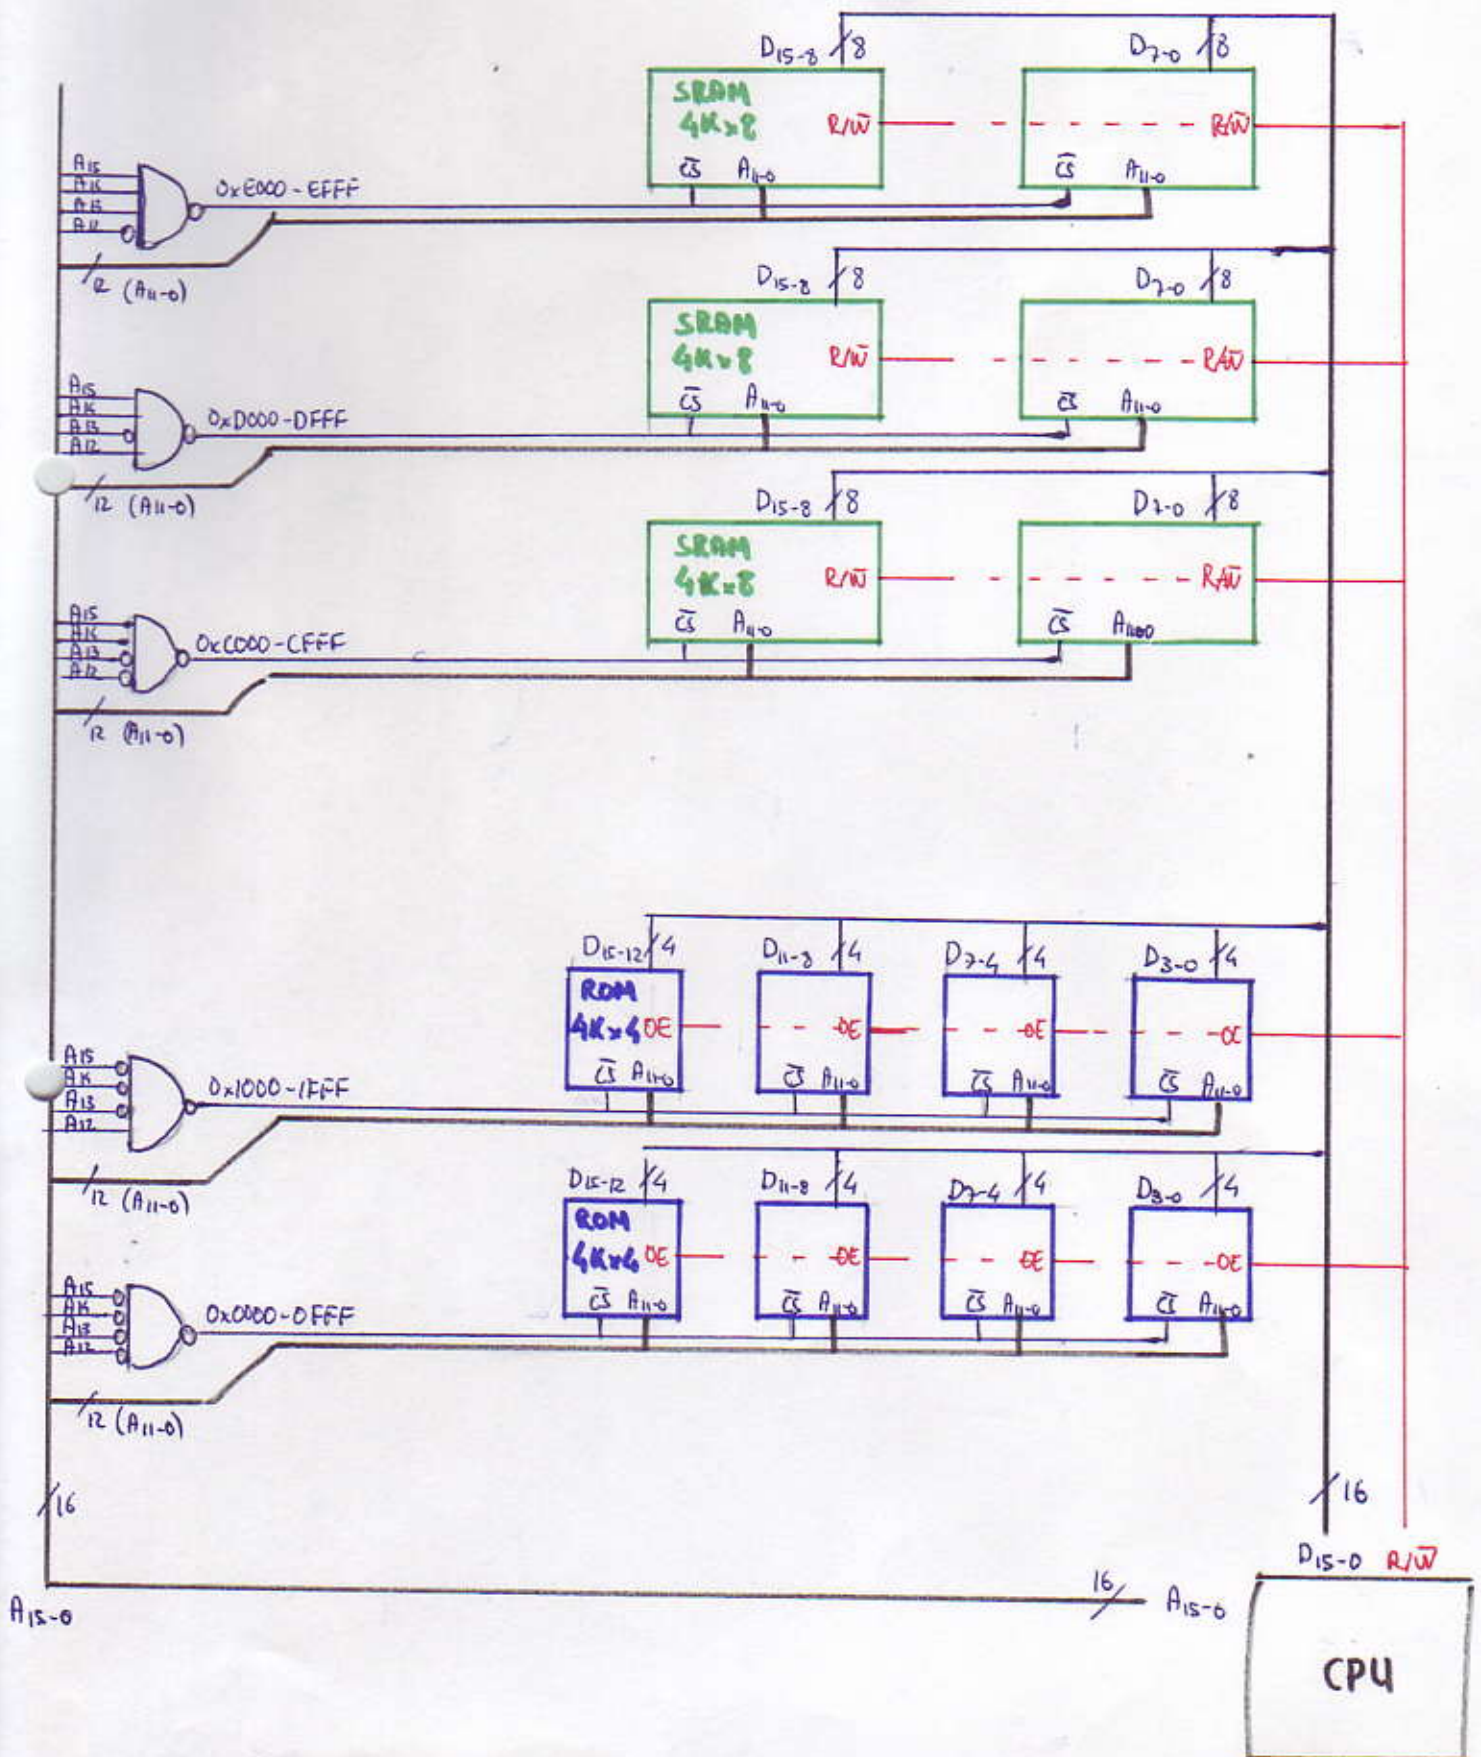 D15-8 8 D7-0 8
SRAM
4K×8 R/W̅ R/W̅
C̅S̅ A11-0 C̅S̅ A11-0
A15
A14
A13
A12
0xE000-EFFF
12 (A11-0)
D15-8 8 D7-0 8
SRAM
4K×8 R/W̅ R/W̅
C̅S̅ A11-0 C̅S̅ A11-0
A15
A14
A13
A12
0xD000-DFFF
12 (A11-0)
D15-8 8 D7-0 8
SRAM
4K×8 R/W̅ R/W̅
C̅S̅ A11-0 C̅S̅ A11-0
A15
A14
A13
A12
0xC000-CFFF
12 (A11-0)
D15-12 4 D11-8 4 D7-4 4 D3-0 4
ROM
4K×4 OE OE OE OE
C̅S̅ A11-0 C̅S̅ A11-0 C̅S̅ A11-0 C̅S̅ A11-0
A15
A14
A13
A12
0x1000-1FFF
12 (A11-0)
D15-12 4 D11-8 4 D7-4 4 D3-0 4
ROM
4K×4 OE OE OE OE
C̅S̅ A11-0 C̅S̅ A11-0 C̅S̅ A11-0 C̅S̅ A11-0
A15
A14
A13
A12
0x0000-0FFF
12 (A11-0)
16 16
D15-0 R/W̅
A15-0 16 A15-0
CPU